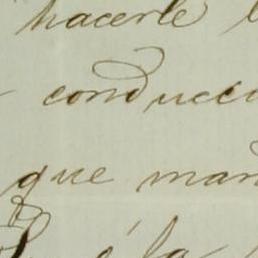 hacerle
conducci
que man
á la